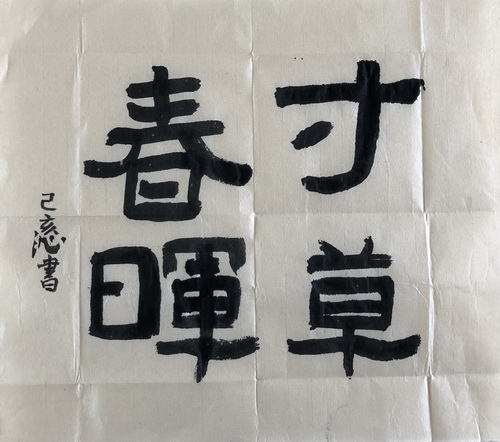 寸草
春暉
己亥沁書